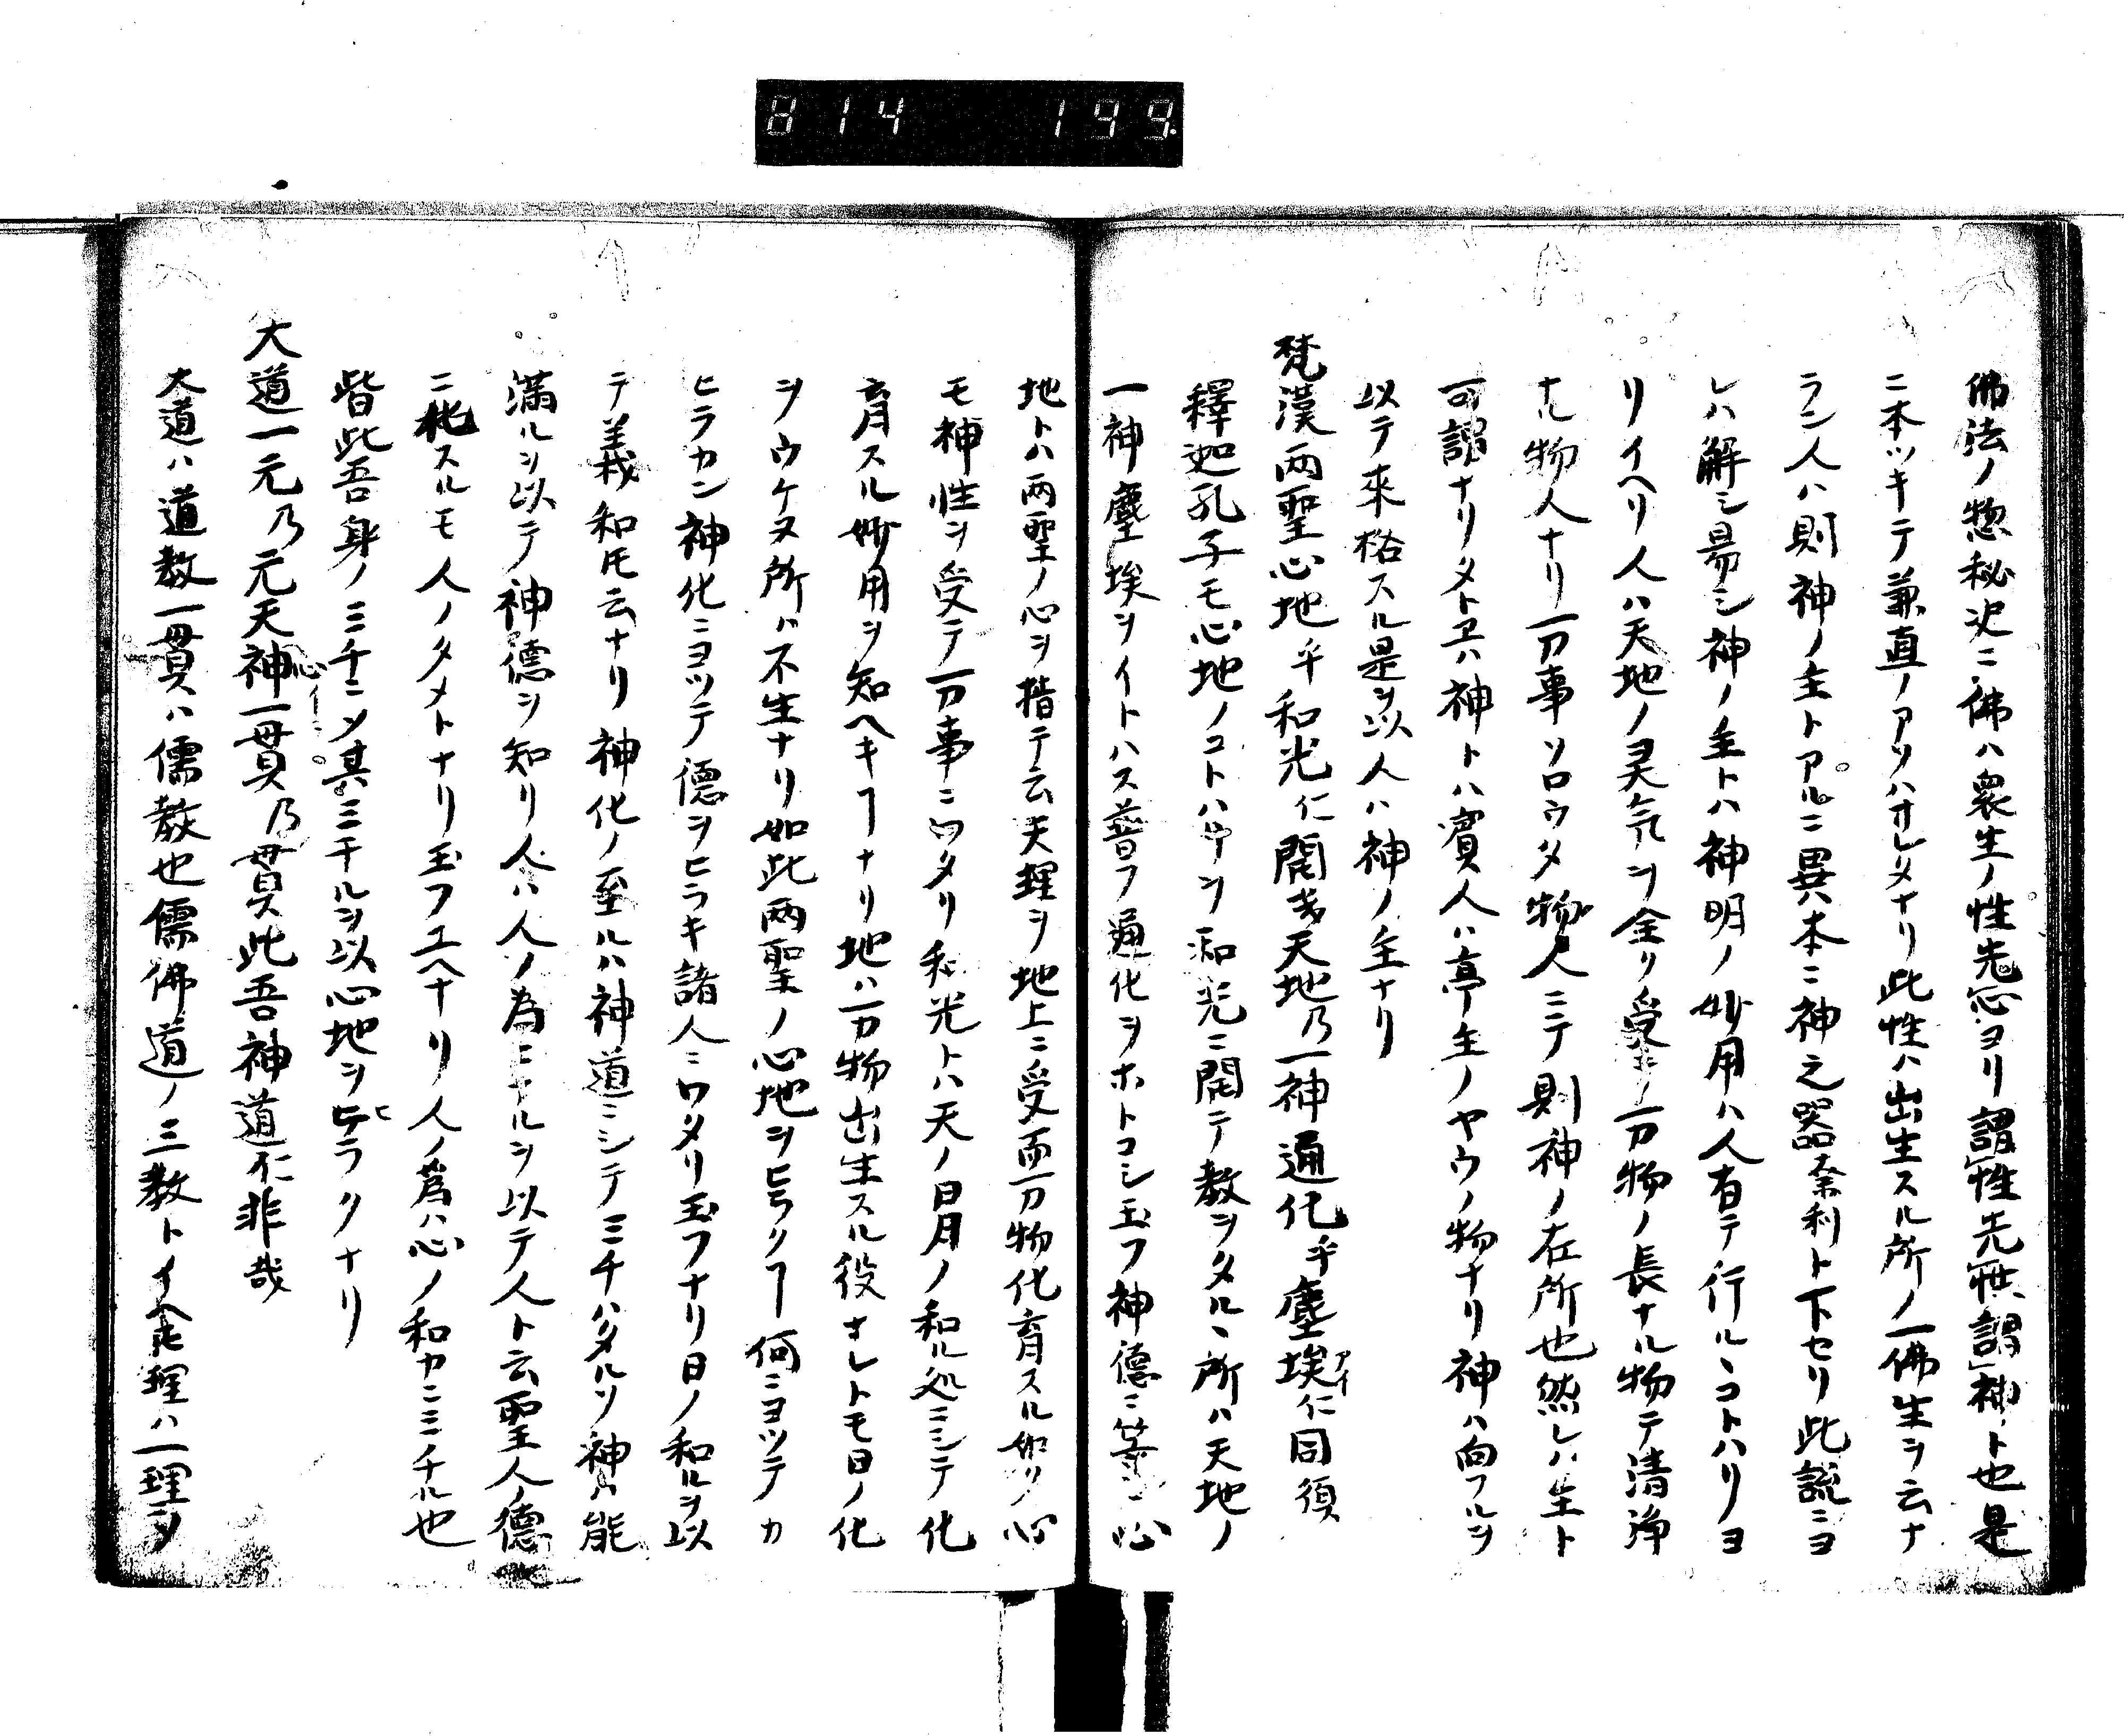 814 199
佛法ノ惣秘决ニ佛ハ衆生ノ性先心ヨリ謂性先世謂神ト也是
ニ本ツキテ兼直ノアソハオレタナリ此性ハ出生スル所ノ一佛生ヲ云ナ
ラン人ハ則神ノ主トアルニ異本ニ神之器奈利ト下セリ此説ニヨ
レハ解シ易シ神ノ主トハ神明ノ妙用ハ人有テ行ルヽコトハリヨ
リイヘリ人ハ天地ノ灵氣ヲ全リ受テ万物ノ長ナル物テ清浄
ナル物人ナリ万事ソロウタ物人ニテ則神ノ在所也然レハ生ト
可謂ナリタトヱハ神トハ賓人ハ亭主ノヤウノ物ナリ神ハ向フルヲ
以テ來格スル是ヲ以人ハ神ノ主ナリ
梵漢両聖心地乎和光仁開幾天地乃一神通化乎塵埃仁同須
アイ
釋迦孔子モ心地ノコトハリヲ和光ニ開テ教ヲタルヽ所ハ天地ノ
一神塵埃ヲイトハス普フ通化ヲホトコシ玉フ神德ニ等シ心
地トハ両聖ノ心ヲ指テ云天理ヲ地上ニ受而万物化育スル如ク心
モ神性ヲ受テ万事ニワタリ和光トハ天ノ日月ノ和ル処ニシテ化
育スル妙用ヲ知ヘキヿナリ地ハ万物出生スル役ナレトモ日ノ化
ヲウケヌ所ハ不生ナリ如此両聖ノ心地ヲヒラクヿ何ニヨツテカ
ヒラカン神化ニヨツテ德ヲヒラキ諸人ニワタリ玉フナリ日ノ和ルヲ以
テ義和氏云ナリ神化ノ至ルハ神道ニシテミチハタルソ神ハ能
満ルヲ以テ神德ヲ知リ人ハ人ノ為ニナルヲ以テ人ト云聖人ノ德
ニ化スルモ人ノタメトナリ玉フユヘナリ人ノ爲ハ心ノ和カニミチル也
皆此吾身ノミチニソ其ミチルヲ以心地ヲヒラクナリ
大道一元乃元天神一貫乃貫此吾神道仁非哉
大道ハ道教一貫ハ儒教也儒佛道ノ三教トイヘ𪜈理ハ一理ニソ